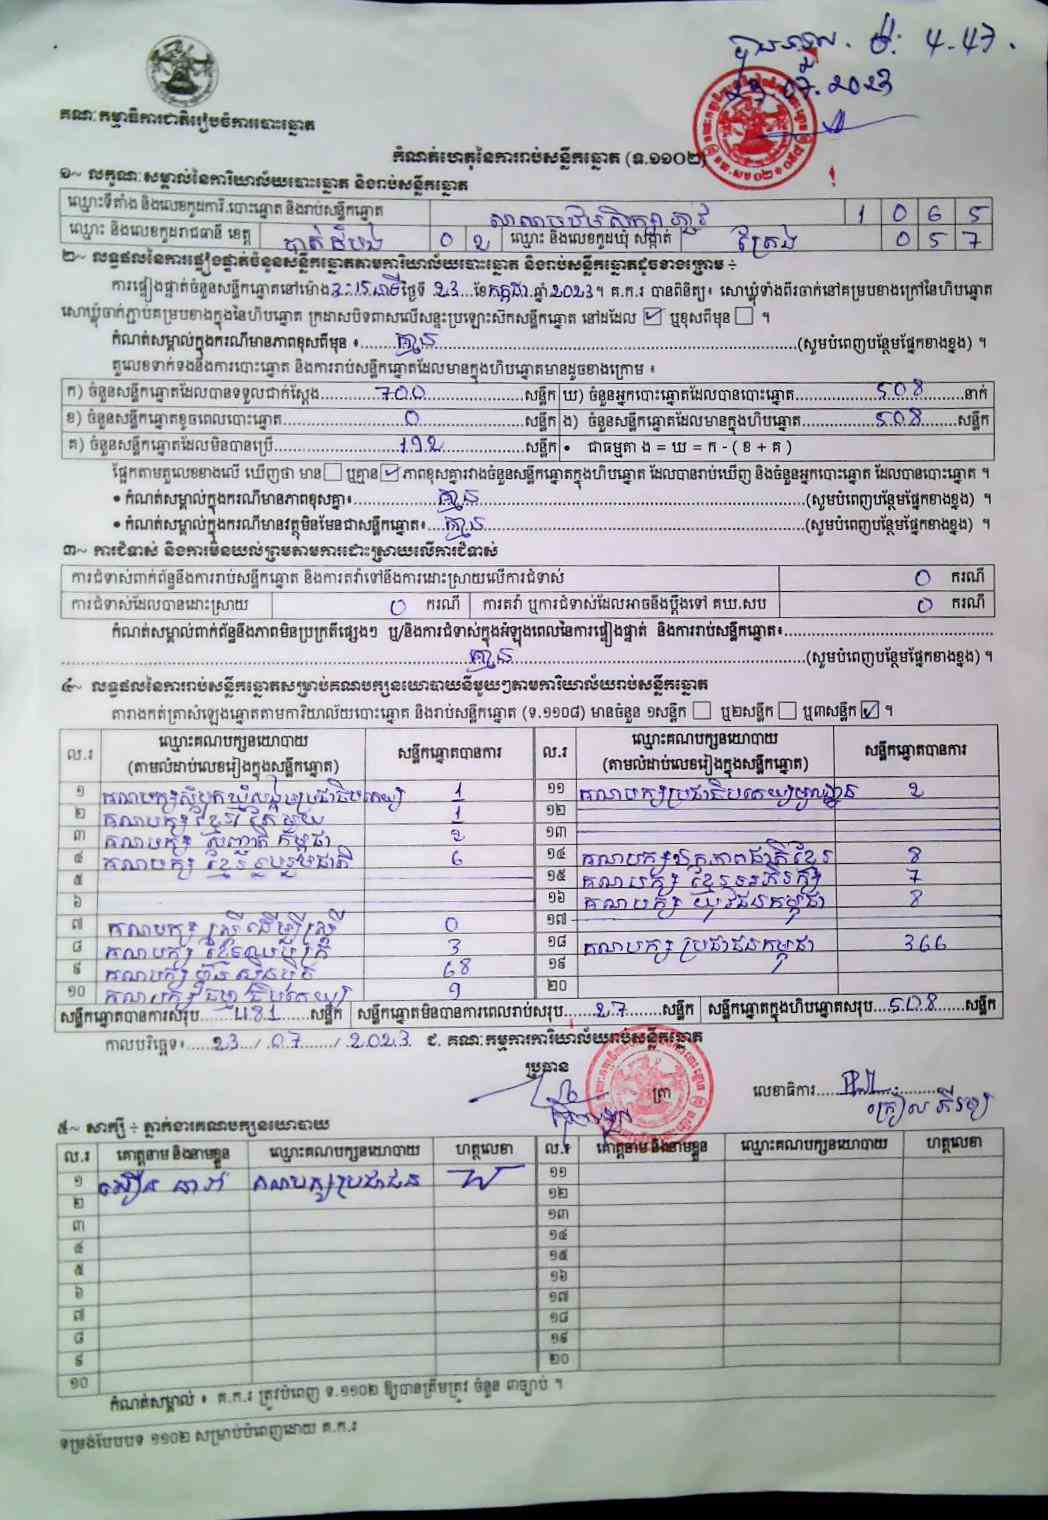 ម៉ៈ 4.47.
23.07.2023
គណៈកម្មាធិការជាតិរៀបចំការបោះឆ្នោត
កំណត់ហេតុនៃការរាប់សន្លឹកឆ្នោត (ទ.១១០២)
១~ លក្ខណៈសម្គាល់នៃការិយាល័យបោះឆ្នោត និងរាប់សន្លឹកឆ្នោត
ឈ្មោះទីតាំង និងលេខកូដការិ.បោះឆ្នោត និងរាប់សន្លឹកឆ្នោត 1 0 6 5
ឈ្មោះ និងលេខកូដរាជធានី ខេត្ត បាត់ដំបង 0 2 ឈ្មោះ និងលេខកូដឃុំ សង្កាត់ ត្រែង 0 5 7
២~ លទ្ធផលនៃការផ្ទៀងផ្ទាត់ចំនួនសន្លឹកឆ្នោតតាមការិយាល័យបោះឆ្នោត និងរាប់សន្លឹកឆ្នោតដូចខាងក្រោម ÷
ការផ្ទៀងផ្ទាត់ចំនួនសន្លឹកឆ្នោតនៅម៉ោង 3:15នាទី ថ្ងៃទី 23 ខែ កក្កដា ឆ្នាំ 2023។ គ.ក.រ បានពិនិត្យ៖ សោឃ្លុំទាំងពីរចាក់នៅគម្របខាងក្រៅនៃហិបឆ្នោត
សោឃ្លុំចាក់ភ្ជាប់គម្របខាងក្នុងនៃហិបឆ្នោត ក្រដាសបិទពាសលើសន្ទះប្រឡោះសឹកសន្លឹកឆ្នោត នៅដដែល ☑ ឬខុសពីមុន ☐ ។
កំណត់សម្គាល់ក្នុងករណីមានភាពខុសពីមុន ៖ គ្មាន (សូមបំពេញបន្ថែមផ្នែកខាងខ្នង) ។
តួលេខទាក់ទងនឹងការបោះឆ្នោត និងការរាប់សន្លឹកឆ្នោតដែលមានក្នុងហិបឆ្នោតមានដូចខាងក្រោម ៖
ក) ចំនួនសន្លឹកឆ្នោតដែលបានទទួលជាក់ស្តែង 700 សន្លឹក ឃ) ចំនួនអ្នកបោះឆ្នោតដែលបានបោះឆ្នោត 508 នាក់
ខ) ចំនួនសន្លឹកឆ្នោតខូចពេលបោះឆ្នោត 0 សន្លឹក ង) ចំនួនសន្លឹកឆ្នោតដែលមានក្នុងហិបឆ្នោត 508 សន្លឹក
គ) ចំនួនសន្លឹកឆ្នោតដែលមិនបានប្រើ 192 សន្លឹក • ជាធម្មតា ង = ឃ = ក - ( ខ + គ )
ផ្អែកតាមតួលេខខាងលើ ឃើញថា មាន ☐ ឬគ្មាន ☑ ភាពខុសគ្នារវាងចំនួនសន្លឹកឆ្នោតក្នុងហិបឆ្នោត ដែលបានរាប់ឃើញ និងចំនួនអ្នកបោះឆ្នោត ដែលបានបោះឆ្នោត ។
• កំណត់សម្គាល់ក្នុងករណីមានភាពខុសគ្នា៖ គ្មាន (សូមបំពេញបន្ថែមផ្នែកខាងខ្នង) ។
• កំណត់សម្គាល់ក្នុងករណីមានវត្ថុមិនមែនជាសន្លឹកឆ្នោត៖ គ្មាន (សូមបំពេញបន្ថែមផ្នែកខាងខ្នង) ។
៣~ ការជំទាស់ និងការមិនយល់ព្រមតាមការដោះស្រាយលើការជំទាស់
ការជំទាស់ពាក់ព័ន្ធនឹងការរាប់សន្លឹកឆ្នោត និងការតវ៉ាទៅនឹងការដោះស្រាយលើការជំទាស់ 0 ករណី
ការជំទាស់ដែលបានដោះស្រាយ 0 ករណី ការតវ៉ា ឬការជំទាស់ដែលអាចនឹងប្តឹងទៅ គឃ.សប 0 ករណី
កំណត់សម្គាល់ពាក់ព័ន្ធនឹងភាពមិនប្រក្រតីផ្សេងៗ ឬ/និងការជំទាស់ក្នុងអំឡុងពេលនៃការផ្ទៀងផ្ទាត់ និងការរាប់សន្លឹកឆ្នោត៖
គ្មាន (សូមបំពេញបន្ថែមផ្នែកខាងខ្នង) ។
៤~ លទ្ធផលនៃការរាប់សន្លឹកឆ្នោតសម្រាប់គណបក្សនយោបាយនីមួយៗតាមការិយាល័យរាប់សន្លឹកឆ្នោត
តារាងកត់ត្រាសំឡេងឆ្នោតតាមការិយាល័យបោះឆ្នោត និងរាប់សន្លឹកឆ្នោត (ទ.១១០៨) មានចំនួន ១សន្លឹក ☐ ឬ២សន្លឹក ☐ ឬ៣សន្លឹក ☑ ។
ល.រ ឈ្មោះគណបក្សនយោបាយ (តាមលំដាប់លេខរៀងក្នុងសន្លឹកឆ្នោត) សន្លឹកឆ្នោតបានការ ល.រ ឈ្មោះគណបក្សនយោបាយ (តាមលំដាប់លេខរៀងក្នុងសន្លឹកឆ្នោត) សន្លឹកឆ្នោតបានការ
១ គណបក្សសំបុកឃ្មុំសង្គមប្រជាធិបតេយ្យ 1 ១១ គណបក្សប្រជាធិបតេយ្យមូលដ្ឋាន 2
២ គណបក្ស ខ្មែរ តែមួយ 1 ១២
៣ គណបក្ស សញ្ជាតិ កម្ពុជា 2 ១៣
៤ គណបក្ស ខ្មែរ រួបរួមជាតិ 6 ១៤ គណបក្សឯកភាពជាតិខ្មែរ 8
៥ ១៥ គណបក្ស ខ្មែរអភិរក្ស 7
៦ ១៦ គណបក្ស យុវជនកម្ពុជា 8
៧ គណបក្ស ស្ត្រីដើម្បីស្ត្រី 0 ១៧
៨ គណបក្ស ខ្មែរឈប់ក្រ 3 ១៨ គណបក្ស ប្រជាជនកម្ពុជា 366
៩ គណបក្ស ហ៊្វុនស៊ិនប៉ិច 68 ១៩
១០ គណបក្ស ធម្មាធិបតេយ្យ 9 ២០
សន្លឹកឆ្នោតបានការសរុប 481 សន្លឹក សន្លឹកឆ្នោតមិនបានការពេលរាប់សរុប 27 សន្លឹក សន្លឹកឆ្នោតក្នុងហិបឆ្នោតសរុប 508 សន្លឹក
កាលបរិច្ឆេទ៖ 23 / 07 / 2023 ជ. គណៈកម្មការការិយាល័យរាប់សន្លឹកឆ្នោត
ប្រធាន
ត្រា លេខាធិការ
៥~ សាក្សី ÷ ភ្នាក់ងារគណបក្សនយោបាយ
ល.រ គោត្តនាម និងនាមខ្លួន ឈ្មោះគណបក្សនយោបាយ ហត្ថលេខា ល.រ គោត្តនាម និងនាមខ្លួន ឈ្មោះគណបក្សនយោបាយ ហត្ថលេខា
១ គណបក្សប្រជាជន ១១
២ ១២
៣ ១៣
៤ ១៤
៥ ១៥
៦ ១៦
៧ ១៧
៨ ១៨
៩ ១៩
១០ ២០
កំណត់សម្គាល់ ៖ គ.ក.រ ត្រូវបំពេញ ទ.១១០២ ឱ្យបានត្រឹមត្រូវ ចំនួន ៣ច្បាប់ ។
ទម្រង់បែបបទ ១១០២ សម្រាប់បំពេញដោយ គ.ក.រ